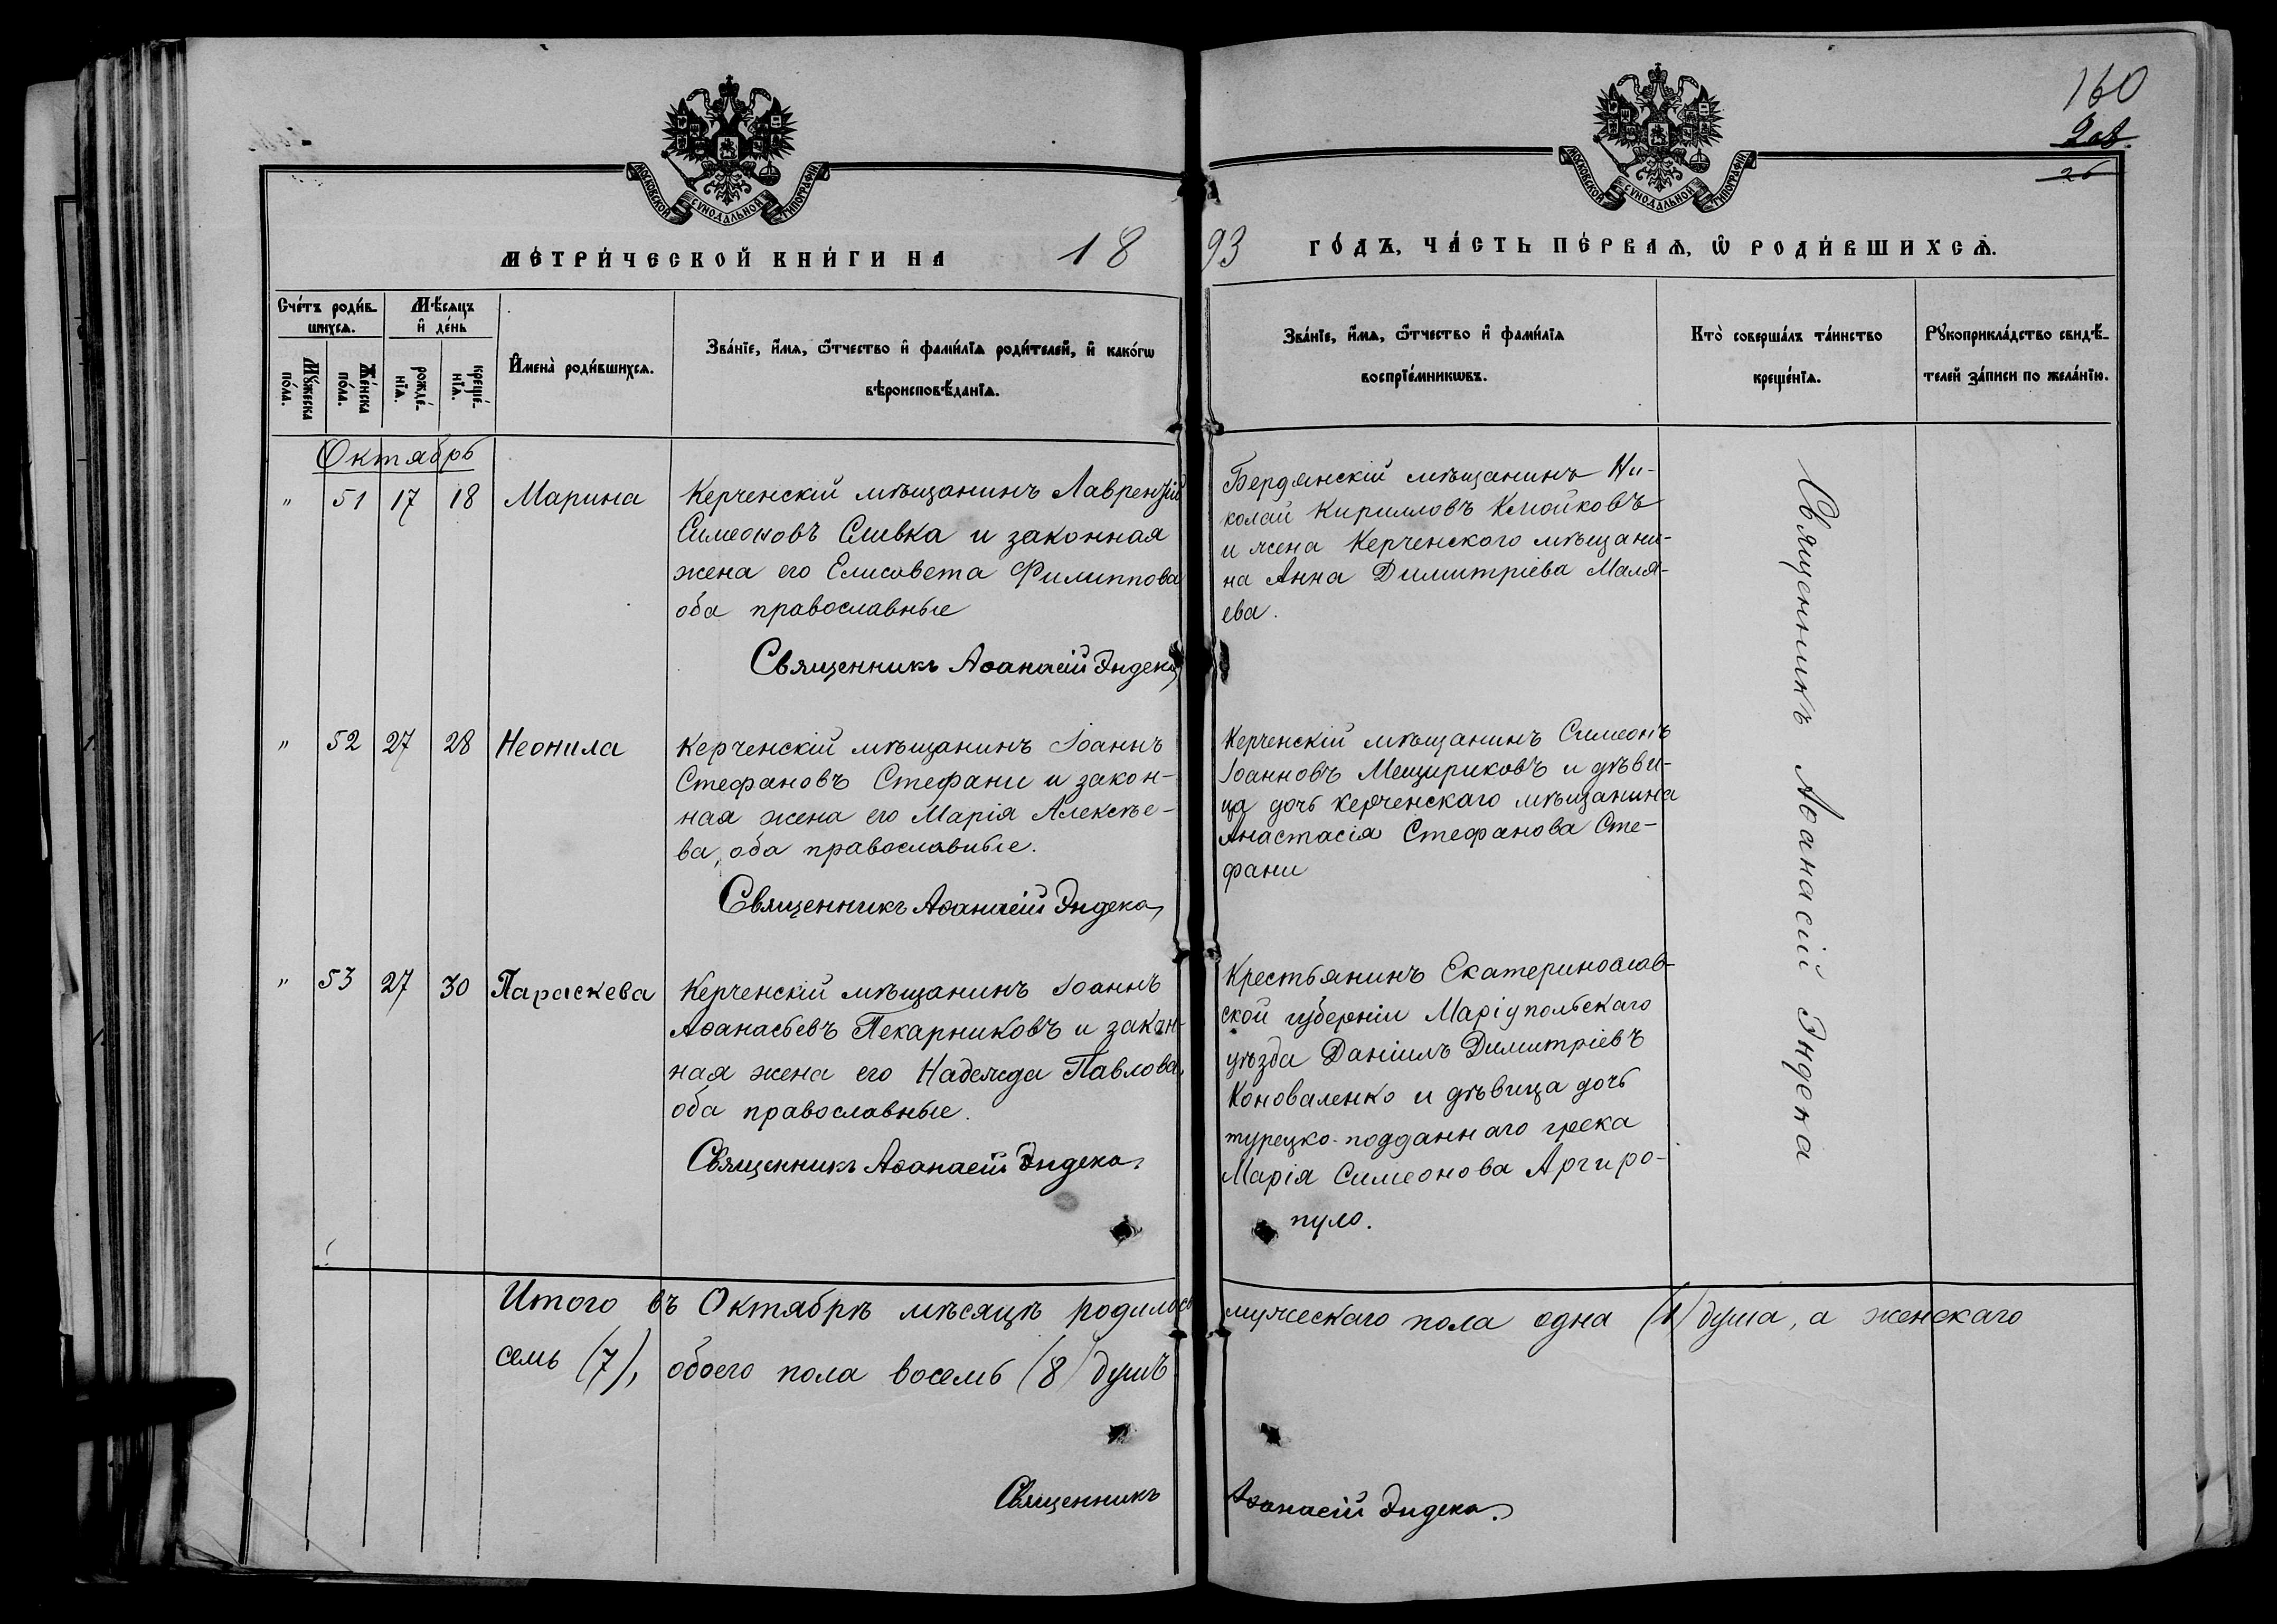 160
208.
26
МОСКОВСКОЙ СѴНОДАЛЬНОЙ ТИПОГРАФІИ
МОСКОВСКОЙ СѴНОДАЛЬНОЙ ТИПОГРАФІИ
МЕ́ТРИ́ЧЕСКОЙ КНИ́ГИ НА 18
93 ГО́ДЪ, ЧА́СТЬ ПЕ́РВАѦ, Ѡ҆ РОДИ́ВШИХСѦ.
Сче́тъ роди́в-
шихсѧ.
Мѣ́сѧцъ
и҆ де́нь
Мꙋ́жеска
по́ла.
Же́нска
по́ла.
рожде́-
нїѧ.
креще́-
нїѧ.
И҆мена̀ роди́вшихсѧ.
Зва́нїе, и҆́мѧ, ѻ҆́тчество и҆ фами́лїѧ роди́телей, и҆ како́гѡ
вѣроисповѣ́данїѧ.
Зва́нїе, и҆́мѧ, ѻ҆́тчество и҆ фами́лїѧ
воспрїе́мникѡвъ.
Кто̀ соверша́лъ та́инство
креще́нїѧ.
Рꙋкоприкла́дство свидѣ́-
телей за́писи по жела́нїю.
Октябрь
" 51 17 18 Марина
Керченскій мѣщанинъ Лаврентій
Симеоновъ Сливка и законная
жена его Елисавета Филиппова
оба православные
Священникъ Аѳанасій Эндека
Бердянскій мѣщанинъ Ни-
колай Кирилловъ Клюйковъ
и жена Керченского мѣщани-
на Анна Димитріева Маля-
ева.
" 52 27 28 Неонила
Керченскій мѣщанинъ Іоаннъ
Стефановъ Стефани и закон-
ная жена его Марія Алексѣе-
ва, оба православные.
Священникъ Аѳанасій Эндека
Керченскій мѣщанинъ Симеонъ
Іоанновъ Мещириковъ и дѣви-
ца дочь керченскаго мѣщанина
Анастасія Стефанова Сте-
фани
" 53 27 30 Параскева
Керченскій мѣщанинъ Іоаннъ
Аѳанасьевъ Пекарниковъ и закон-
ная жена его Надежда Павлова,
оба православные.
Священникъ Аѳанасій Эндека.
Крестьянинъ Екатеринослав-
ской губерніи Маріупольскаго
уѣзда Даніилъ Димитріевъ
Коноваленко и дѣвица дочь
турецко-подданнаго грека
Марія Симеонова Аргиро-
пуло.
Священникъ Аѳанасій Эндека
Итого въ Октябрѣ мѣсяцѣ родилось мужескаго пола одна (1) душа, а женскаго
семь (7), обоего пола восемь (8) душъ
Священникъ Аѳанасій Эндека.